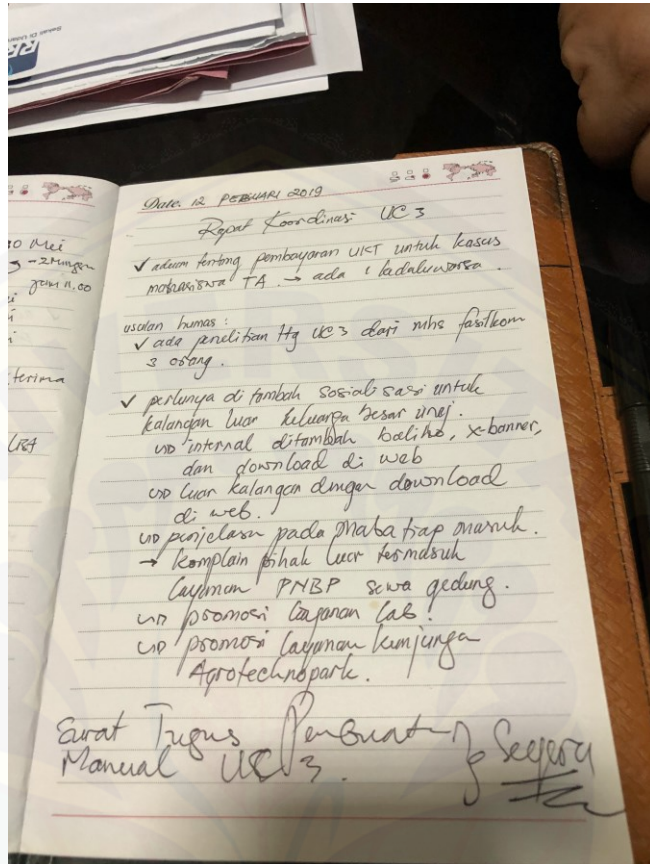 Sebuah Di Univer
0 Mei
- 2 Minggu
jam 11.00
terima
LRA
Date: 12 FEBRUARI 2019
Rapat Koordinasi UC 3
✓ aduan tentang pembayaran UKT untuk kasus
mahasiswa TA. → ada 1 kadaluwarsa.
usulan humas:
✓ ada penelitian ttg UC3 dari mhs fasilkom
3 orang.
✓ perlunya di tambah sosialisasi untuk
kalangan luar keluarga besar unej.
internal ditambah baliho, x-banner,
dan download di web
luar kalangan dengan download
di web.
penjelasan pada Maba tiap masuk.
→ komplain pihak luar termasuk
layanan PNBP sewa gedung.
promosi layanan Lab.
promosi layanan kunjunga
Agrotechnopark.
Surat Tugas Pembuat
Manual UC 3. Segera